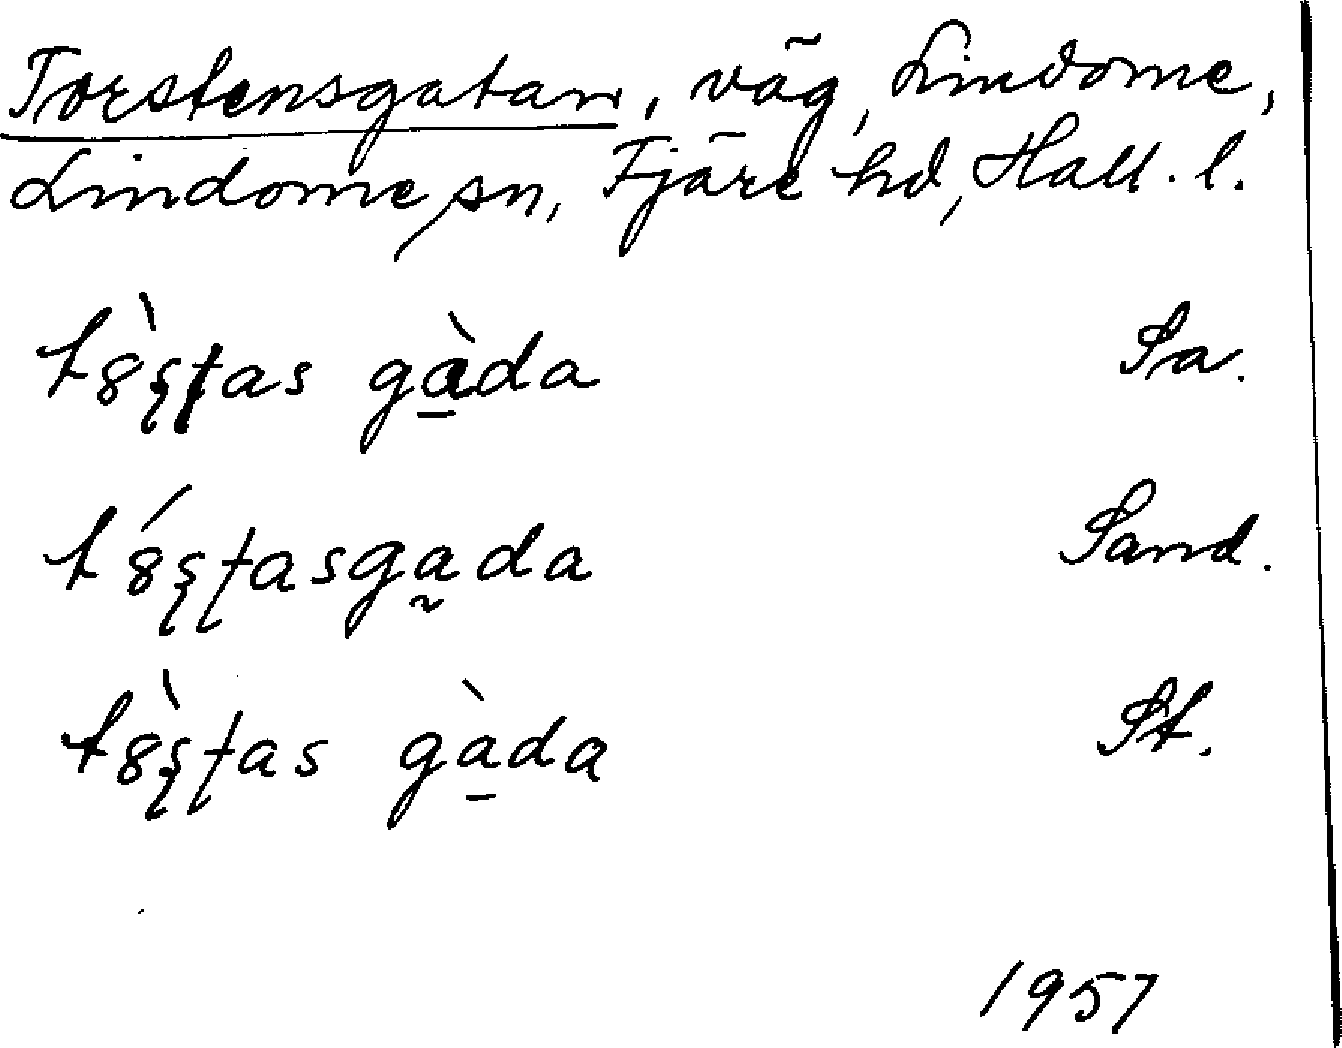 Torstensgatan, väg, Lindome,
Lindome sn, Fjäre hd, Hall. l.
t8̀şţas gà̱da Sa.
t8́şţasga̰da Sand.
t8̀şţas gà̱da St.
1957